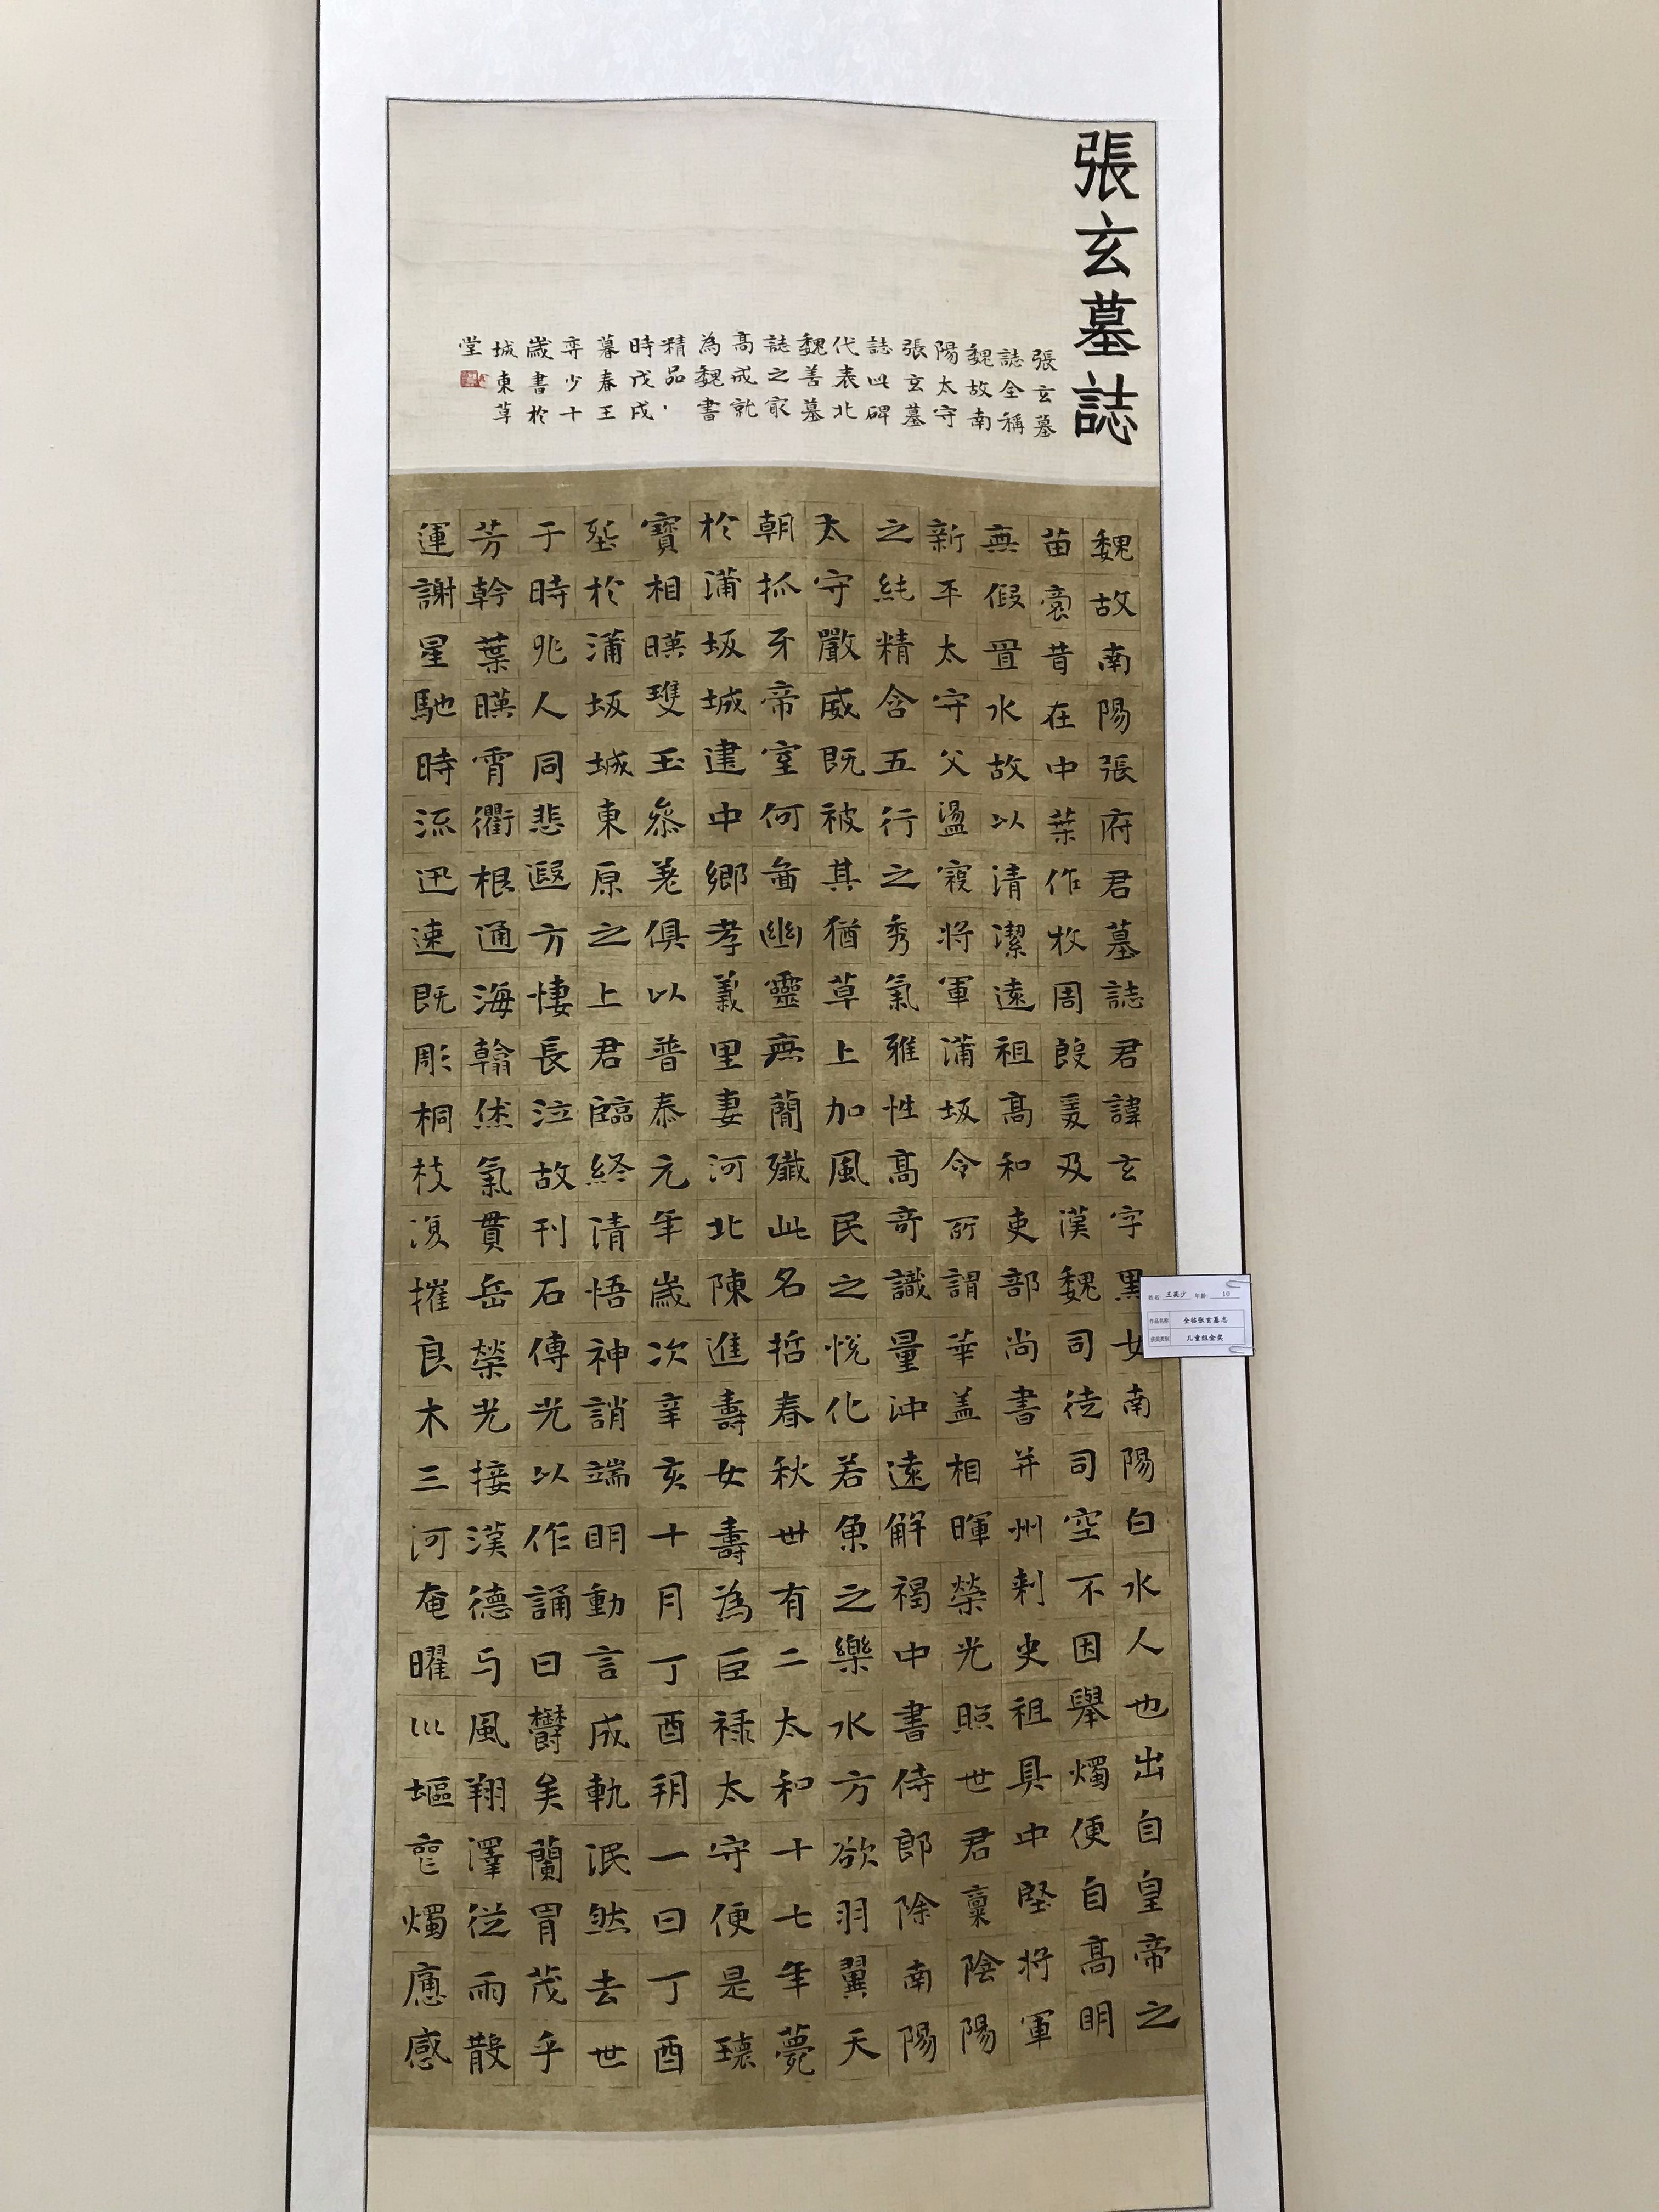 張玄墓誌
張玄墓
誌全稱
魏故南
陽太守
張玄墓
誌此碑
代表北
魏善墓
誌之家
高成就
為魏書
精品,
時戊戌
暮春王
弈少十
歲書於
城東草
堂
魏故南陽張府君墓誌君諱玄字黑女南陽白水人也出自皇帝之
苗裔昔在中葉作牧周殷爰及漢魏司徒司空不因舉燭便自高明
無假置水故以清潔遠祖高和吏部尚書并州刺史祖具中堅將軍
新平太守父盪寇將軍蒲坂令所謂華盖相暉榮光照世君稟陰陽
之純精含五行之秀氣雅性高奇識量沖遠解褐中書侍郎除南陽
太守嚴威既被其猶草上加風民之悅化若魚之樂水方欲羽翼天
朝抓牙帝室何啚幽靈無簡殲此名哲春秋世有二太和十七年薨
於蒲坂城建中鄉孝義里妻河北陳進壽女壽為巨祿太守便是瓌
寶相暎瓊玉參差俱以普泰元年歲次辛亥十月丁酉朔一日丁酉
塟於蒲坂城東原之上君臨終清悟神誚端明動言成軌泯然去世
于時兆人同悲遐方悽長泣故刊石傳光以作誦曰欝矣蘭胄茂乎
芳幹葉暎霄衢根通海翰烋氣貫岳榮光接漢德与風翔澤從雨散
運謝星馳時流迅速既彫桐枝復摧良木三河奄曜巛塸燭感
姓名 王奕少 年龄 10
作品名称 全临张玄墓志
获奖类别 儿童组金奖